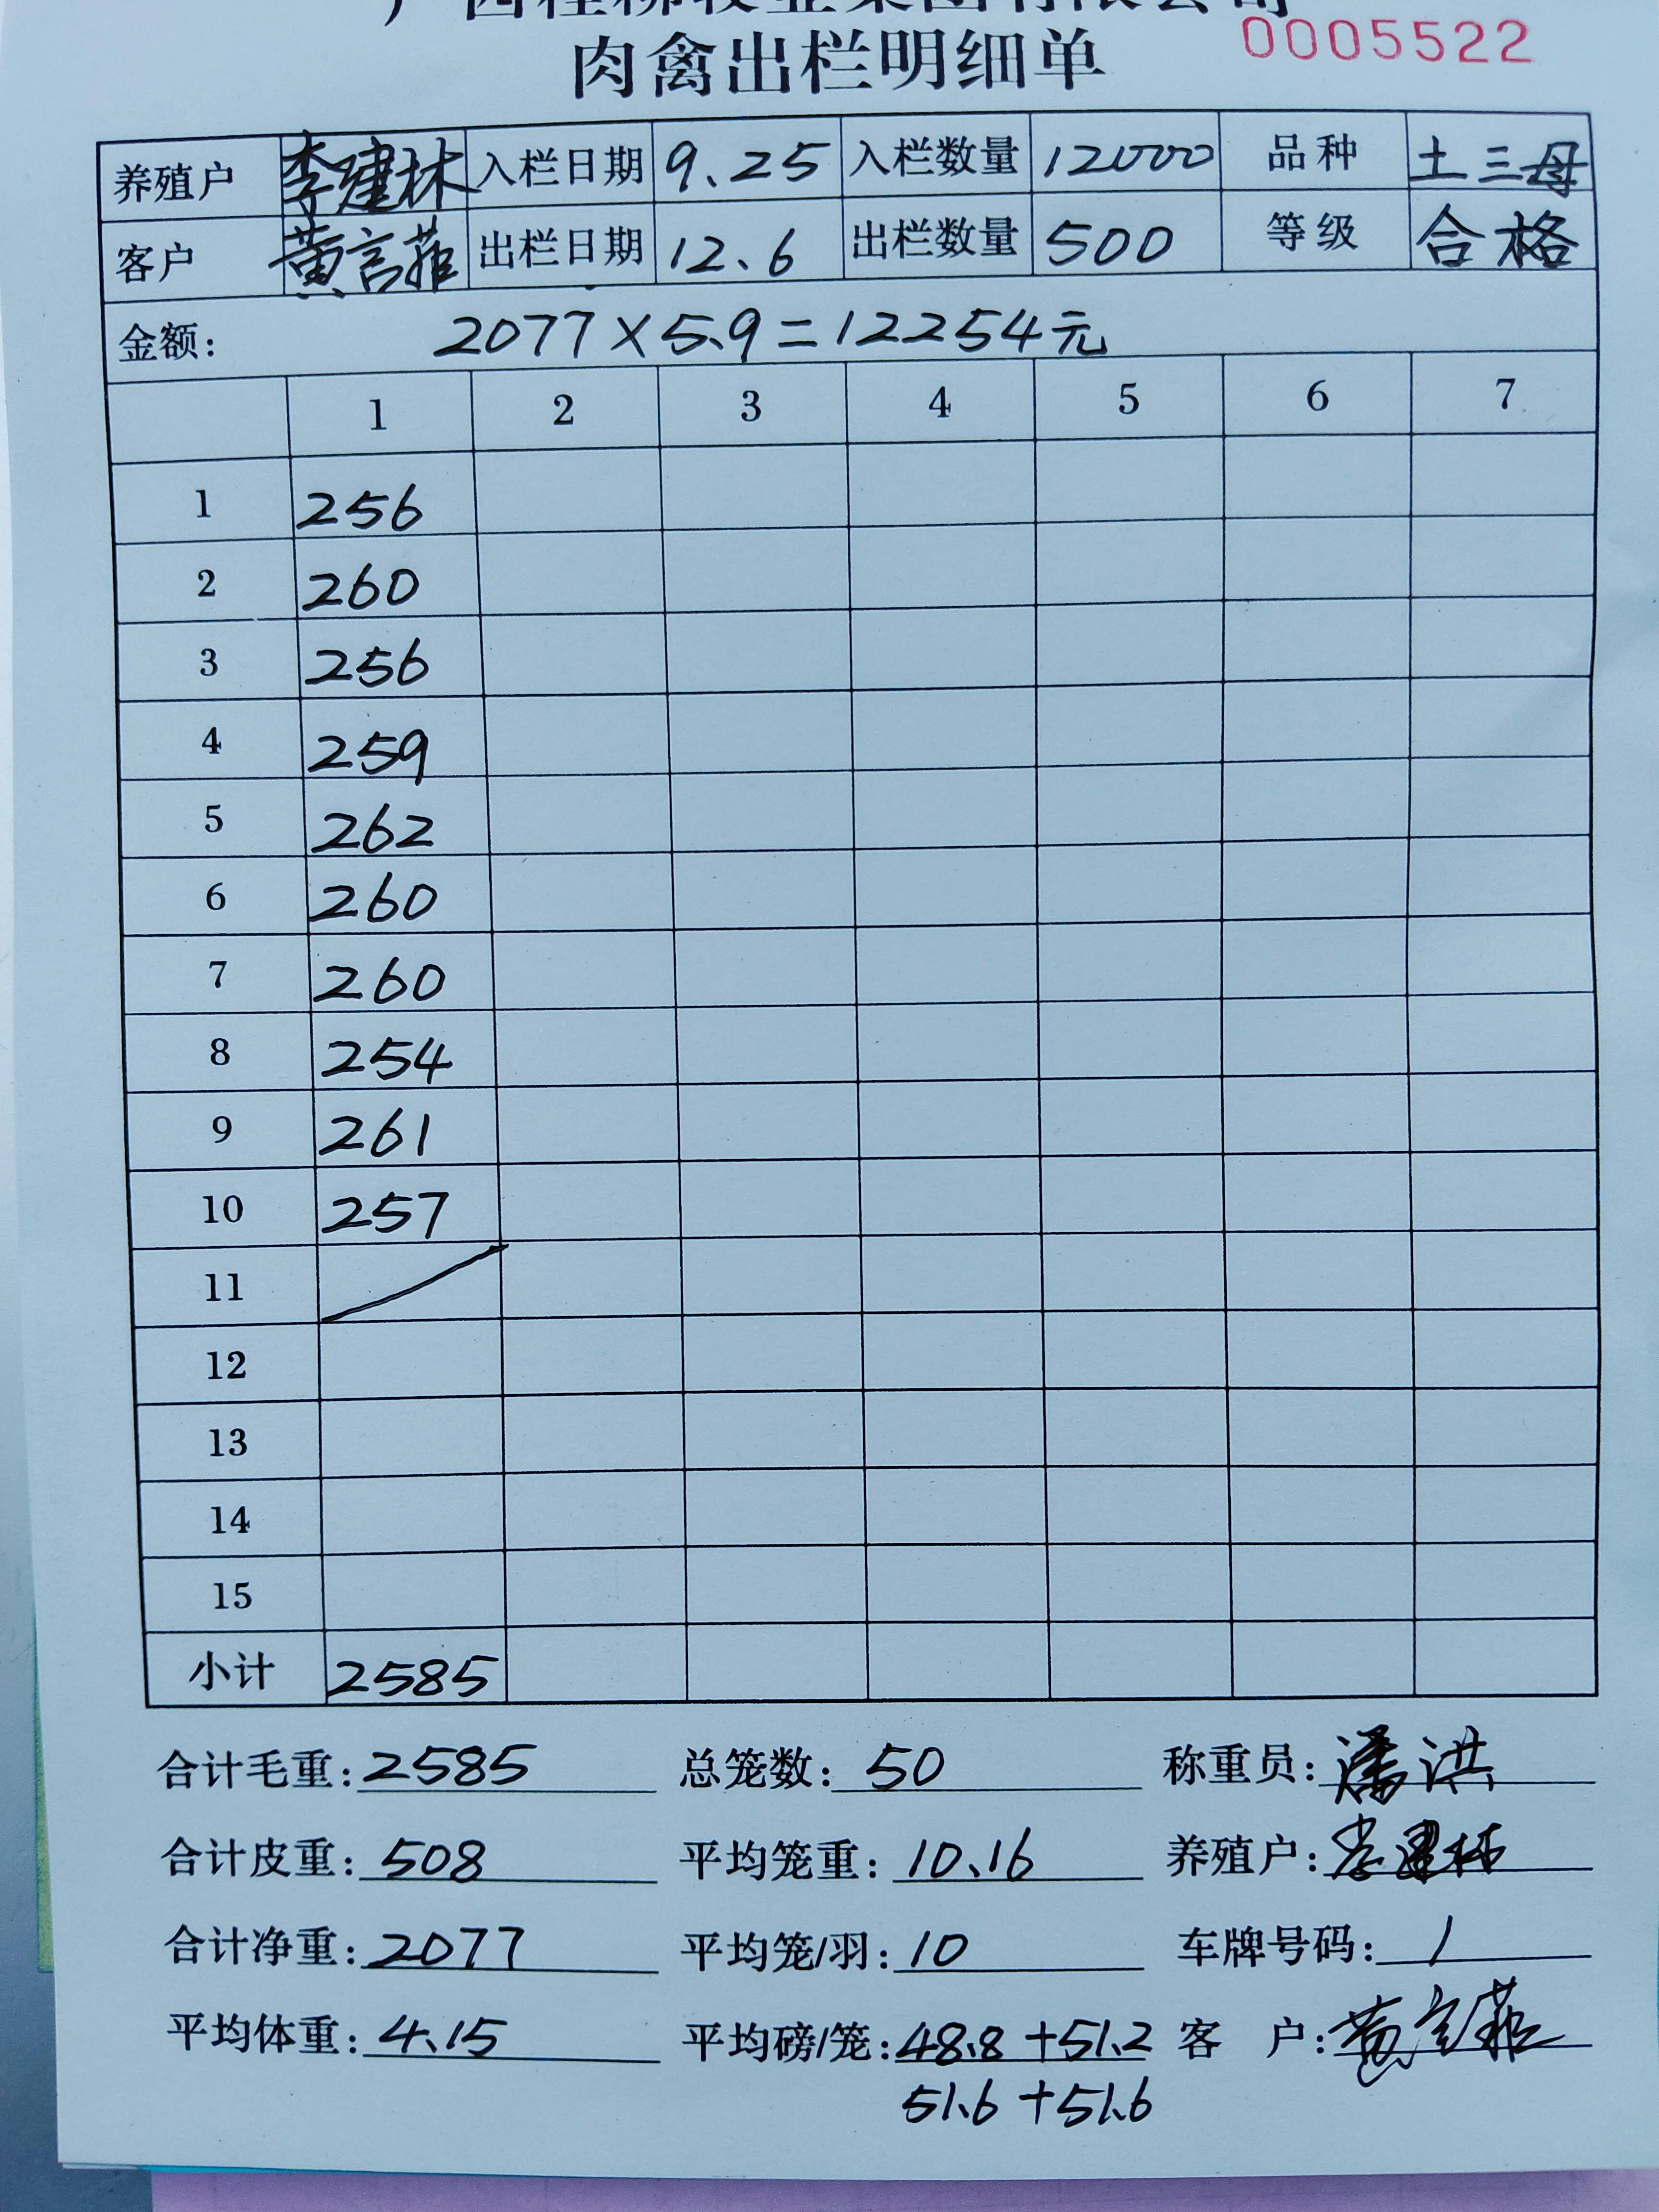 广西桂柳牧业集团有限公司
肉禽出栏明细单 0005522
养殖户 李建林 入栏日期 9.25 入栏数量 12000 品种 土三母
客户 黄言菲 出栏日期 12.6 出栏数量 500 等级 合格
金额： 2077×5.9=12254元
1 2 3 4 5 6 7
1 256
2 260
3 256
4 259
5 262
6 260
7 260
8 254
9 261
10 257
11
12
13
14
15
小计 2585
合计毛重：2585 总笼数：50 称重员：潘洪
合计皮重：508 平均笼重：10.16 养殖户：李建林
合计净重：2077 平均笼/羽：10 车牌号码：1
平均体重：4.15 平均磅/笼：48.8+51.2 客 户：
51.6+51.6